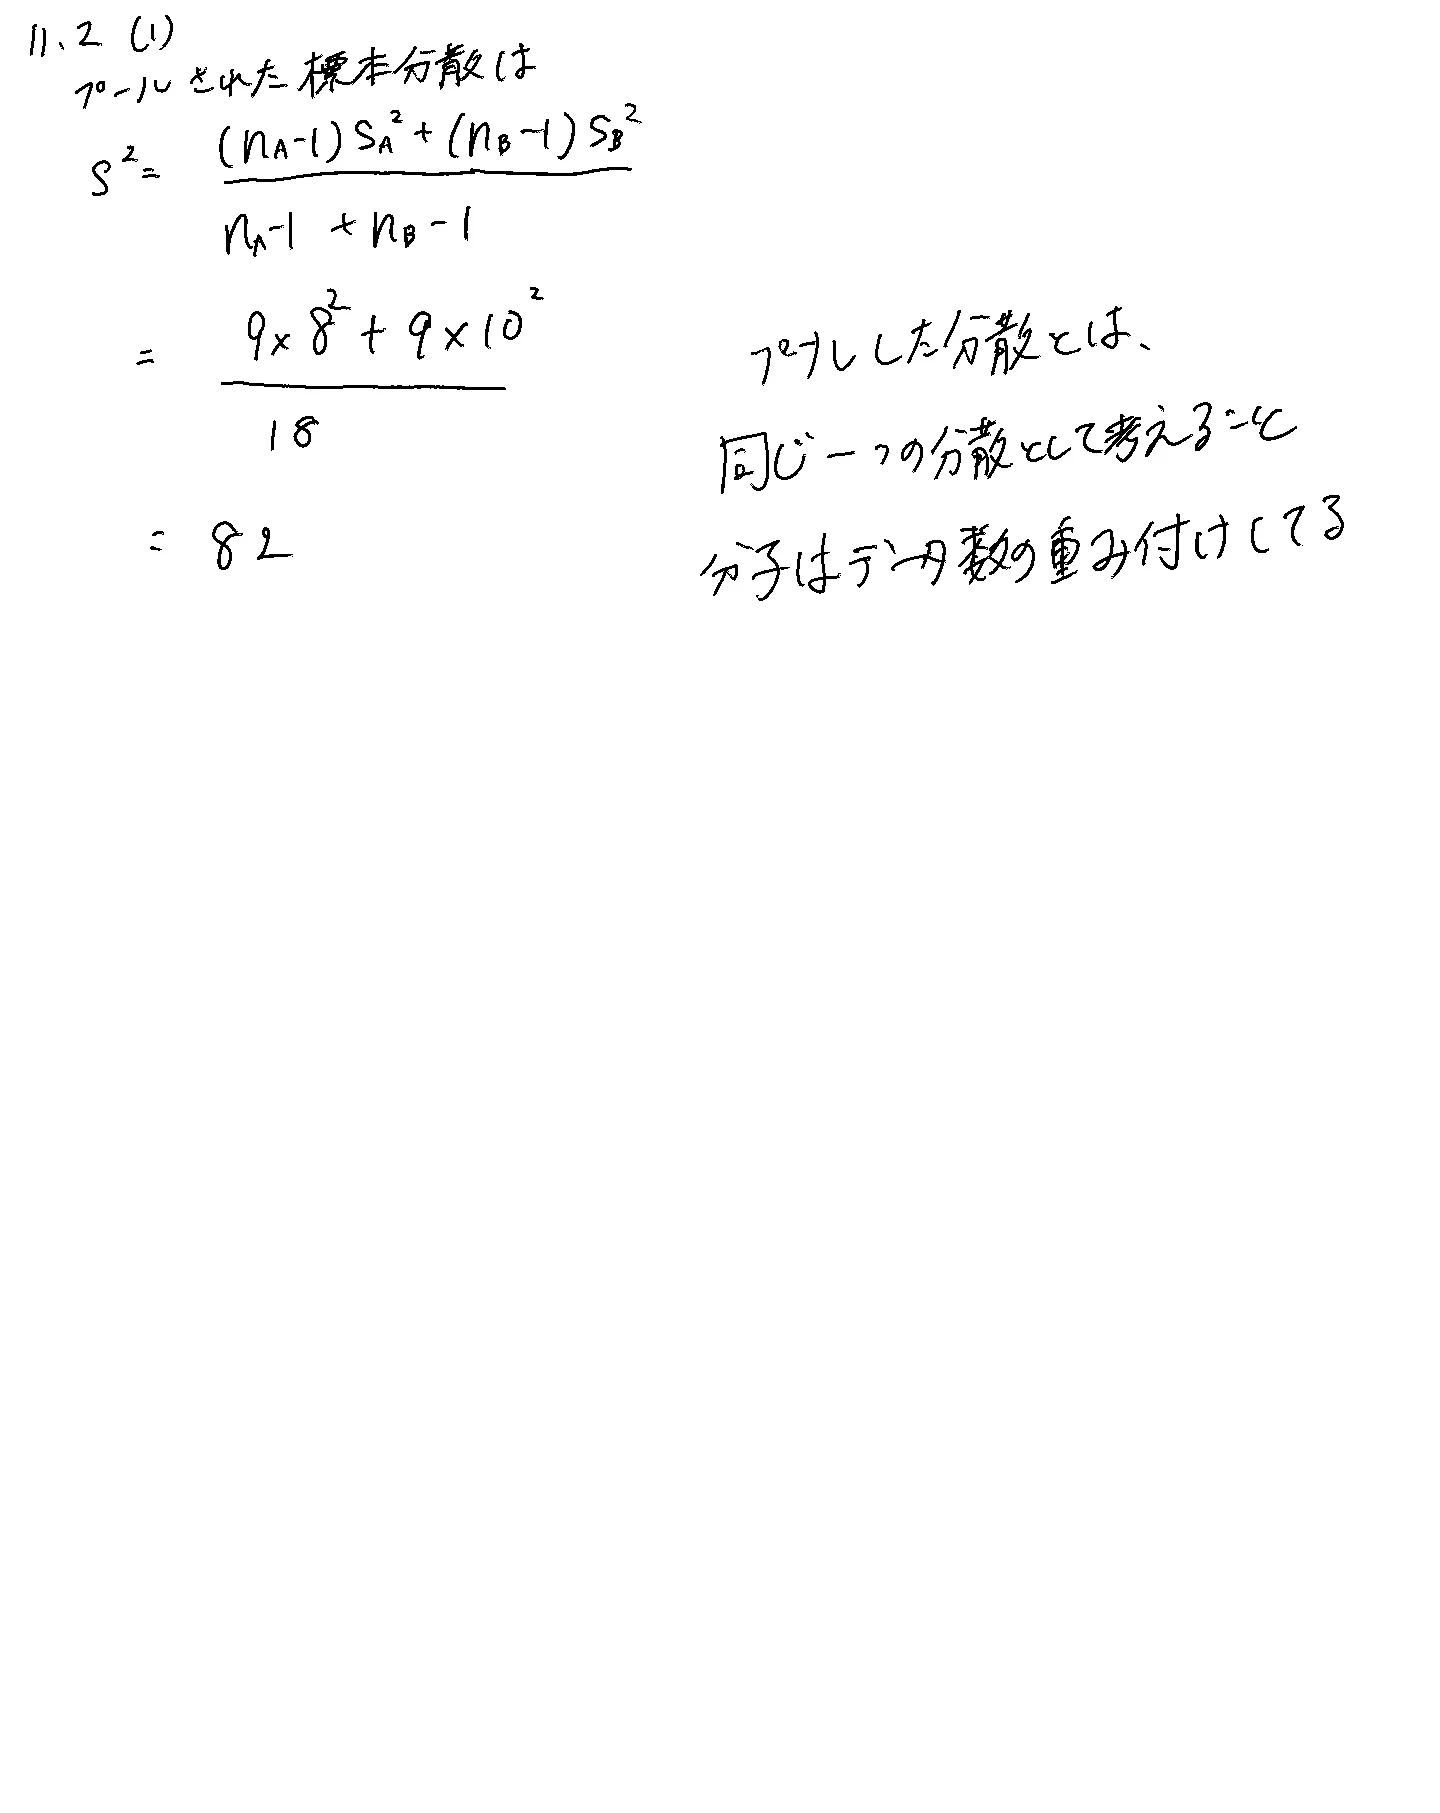 11.2 (1)
プールされた標本分散は
S² = ((nA-1)SA² + (nB-1)SB²) / (nA-1 + nB-1)
= (9×8² + 9×10²) / 18
= 82
プールした分散とは、
同じ一つの分散として考えること
分子はデータ数の重み付けしてる